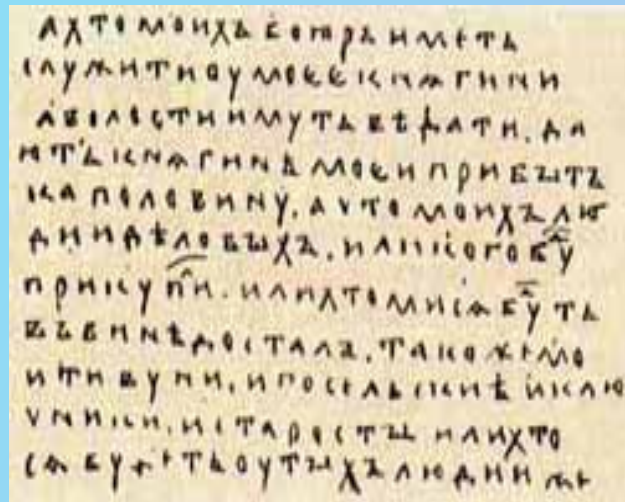 А ХТО МОИХЪ БОӒРЪ ИМЕТЬ
СЛУЖИТИ ОУ МОЕЕ КНѦГИНИ
А ВОЛОСТИ ИМУТЬ ВѢДАТИ. ДА
ЮТЬ КНѦГИНѢ МОЕИ ПРИБЫТЪ
КА ПОЛОВИНУ. А ЧТО МОИХЪ ЛЮ
ДИИ ДѢЛОВЫХЪ. ИЛИ КОГО БУД
ПРИКУПИЛ. ИЛИ ХТО МИ СѦ БУДТЬ
ВЪ ВИНѢ ДОСТАЛЪ. ТАКО ЖЕ МО
И ТИВУНИ. И ПОСЕЛЬСКИѢ И КЛЮ
ЧНИКИ. И СТАРОСТЫ ИЛИ ХТО
СѦ БУДЕТЬ ОУ ТЫХЪ ЛЮДИИ ЖЕ